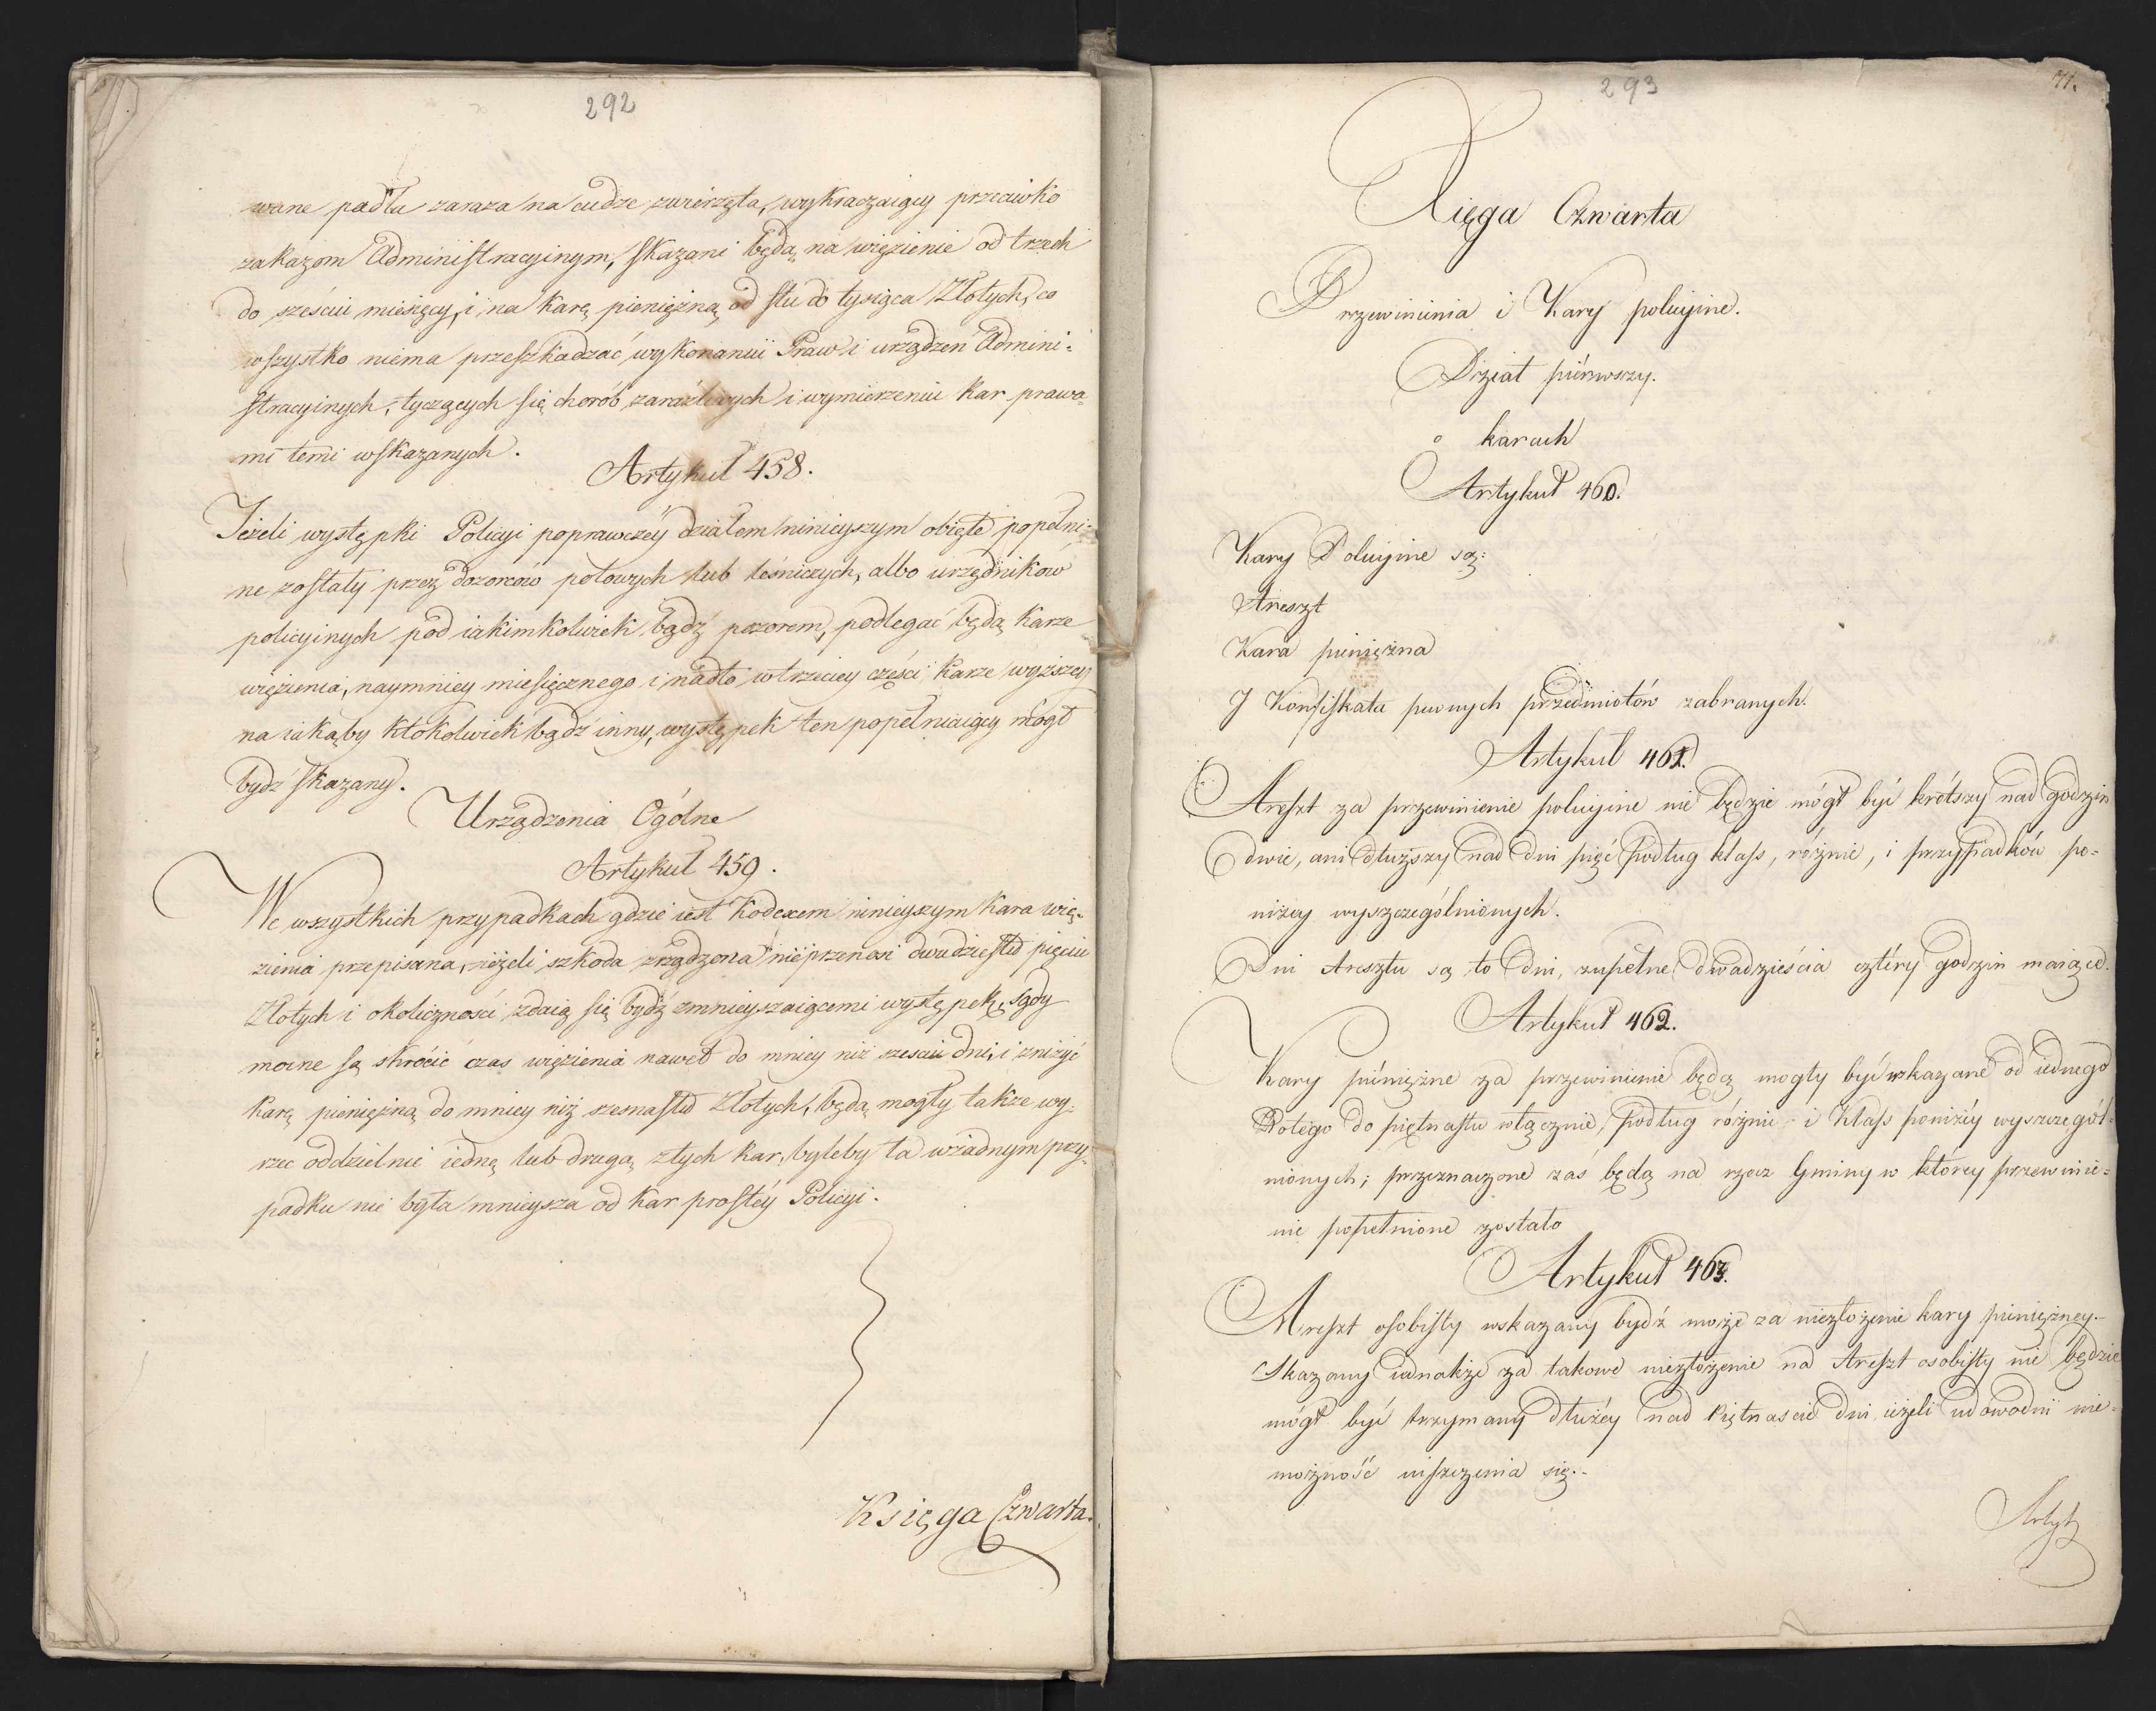 292
wane padła zaraza na cudze zwierzęta, wykraczaiący przeciwko
zakazom Administracyinym, skazani będą na więzienie od trzech
do sześciu miesięcy, i na karę pieniężną od stu do tysiąca Złotych, co
wszystko niema przeszkadzać wykonaniu Praw i urządzen Admini-
stracyinych, tyczących się chorób zaraźliwych i wymierzeniu kar prawa-
mi temi wskazanych.
Artykuł 458.
Jeżeli występki Policyi poprawczéy działem ninieyszym obięte popełni-
ne zostały przez dozorców polowych lub leśniczych, albo urzędników
policyinych pod iakimkolwiek bądź pozorem, podlegać będą karze
więzienia, naymniey miesięcznego i nadto w trzeciey części karze wyższey
na iakąby ktokolwiek bądź inny, występek ten popełniaiący mógł
bydź skazany.
Urządzenia Ogólne
Artykuł 459.
We wszystkich przypadkach gdzie iest Kodexem ninieyszym kara wię-
zienia przepisana, ieżeli szkoda zrządzona nieprzenosi dwudziestu pięciu
Złotych i okoliczności zdaią się bydź zmnieyszaiącemi występek, Sądy
mocne są skrócić czas więzienia nawet do mniey niż sześciu dni, i zniżyć
karę pieniężną do mniey niż szesnastu Złotych, będą mogły także wy-
rzec oddzielnie iedną lub drugą z tych kar, byleby ta w żadnym przy-
padku nie była mnieysza od kar prostéy Policyi.
Księga Czwarta.
293
71.
Xięga Czwarta
Przewinienia i Kary policyine.
Dział piérwszy.
o karach
Artykuł 460.
Kary Policyine są:
Areszt
Kara pieniężna
J Konfiskata pewnych przedmiotów zabranych.
Artykuł 461.
Areszt za przewinienie policyine nie będzie mógł być krótszy nad godzin
dwie, ani dłuższy nad dni pięć podług klass, różnic, i przypadków po-
niżey wyszczególnionych.
Dni Aresztu są to dni, zupełne dwadzieścia cztéry godzin maiące.
Artykuł 462.
Kary pieniężne za przewinienie będą mogły być wskazane od iednego
Złotego do piętnastu włącznie, podług różnic i Klass poniżéy wyszczegól-
nionych; przeznaczone zaś będą na rzecz Gminy w którey przewinie-
nie popełnione zostało
Artykuł 463.
Areszt osobisty wskazany bydź może za niezłożenie kary pieniężney.
Skazany iednakże za takowe niezłożenie na Areszt osobisty nie będzie
mógł być trzymany dłużéy nad Piętnaście dni ieżeli udowodni nie-
możność uiszczenia się.
Artyk